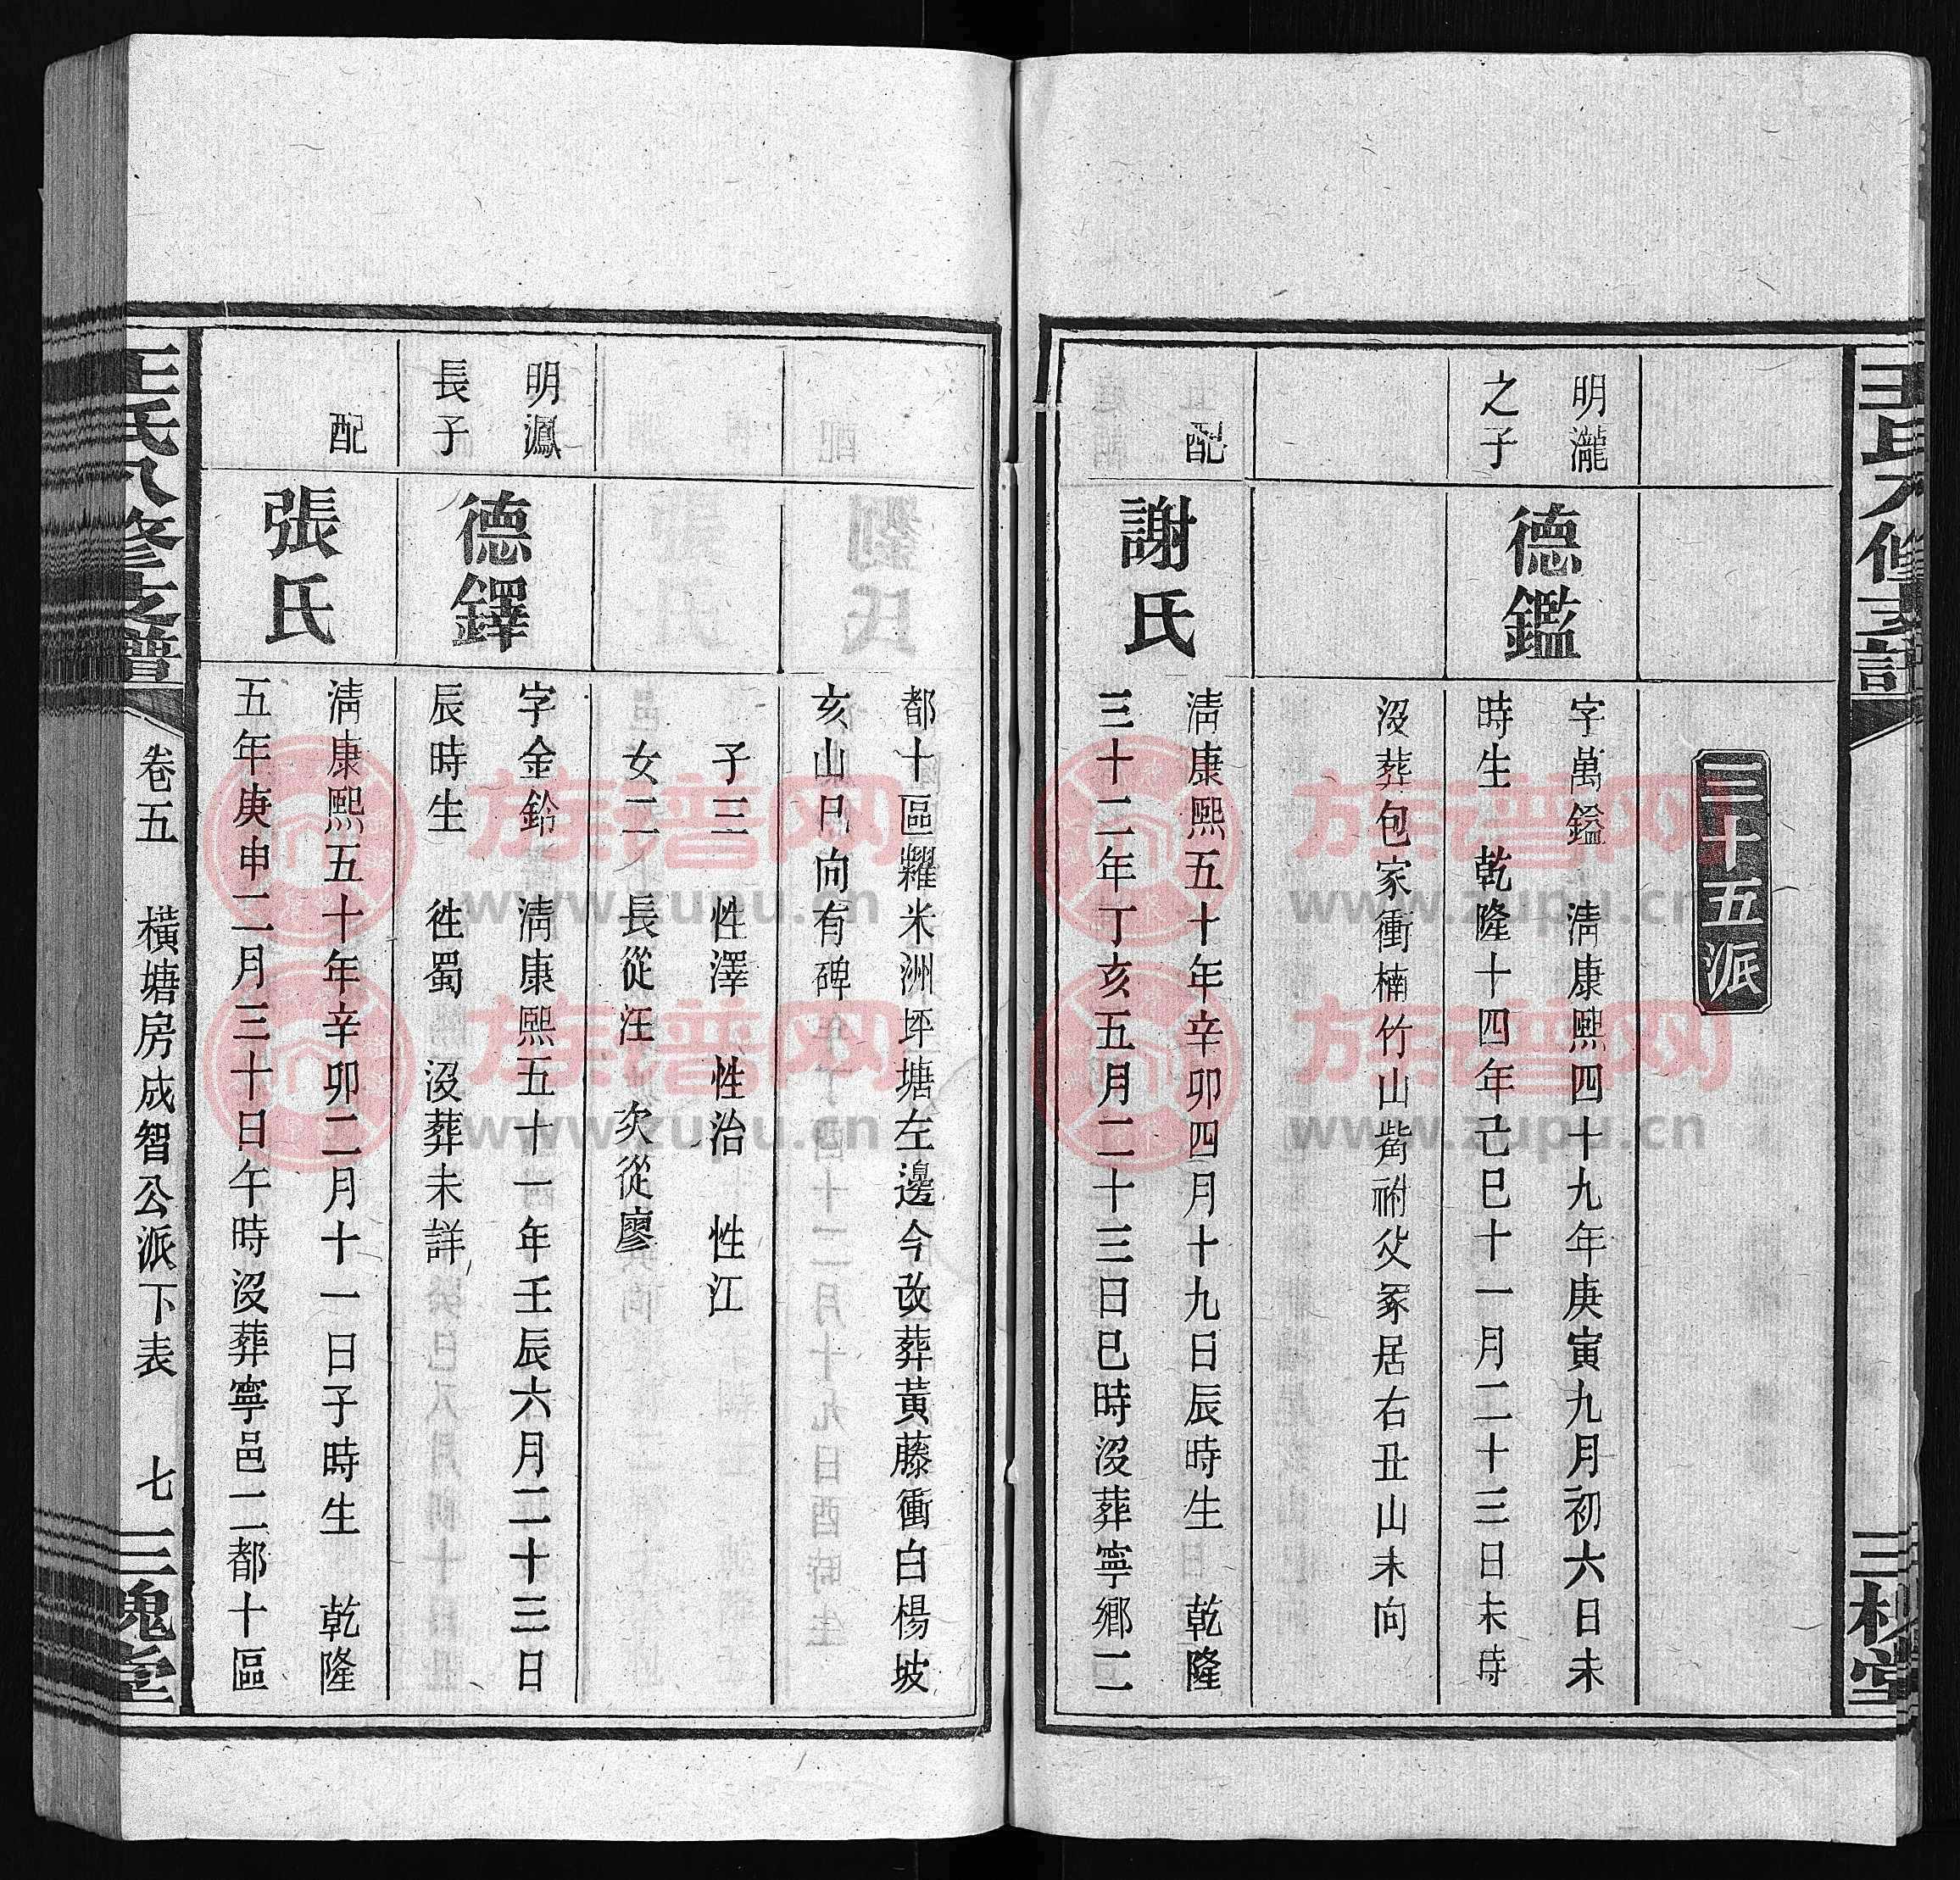 王氏八修支譜
三槐堂
三十五派
明瀧
之子
德鑑
字萬鎰 淸康熙四十九年庚寅九月初六日未
時生 乾隆十四年己巳十一月二十三日未時
沒葬包家衝楠竹山嘴祔父冢居右丑山未向
配
謝氏
淸康熙五十年辛卯四月十九日辰時生 乾隆
三十二年丁亥五月二十三日巳時沒葬寧鄉二
都十區糶米洲坪塘左邊今改葬黃藤衝白楊坡
亥山巳向有碑
子三 性澤 性治 性江
女二 長從汪 次從廖
明鳳
長子
德鐸
字金鈴 淸康熙五十一年壬辰六月二十三日
辰時生 徃蜀 沒葬未詳
配
張氏
淸康熙五十年辛卯二月十一日子時生 乾隆
五年庚申二月三十日午時沒葬寧邑二都十區
王氏八修支譜
卷五 橫塘房成智公派下表 七
三槐堂
族谱网
www.zupu.cn
族谱网
www.zupu.cn
族谱网
www.zupu.cn
族谱网
www.zupu.cn